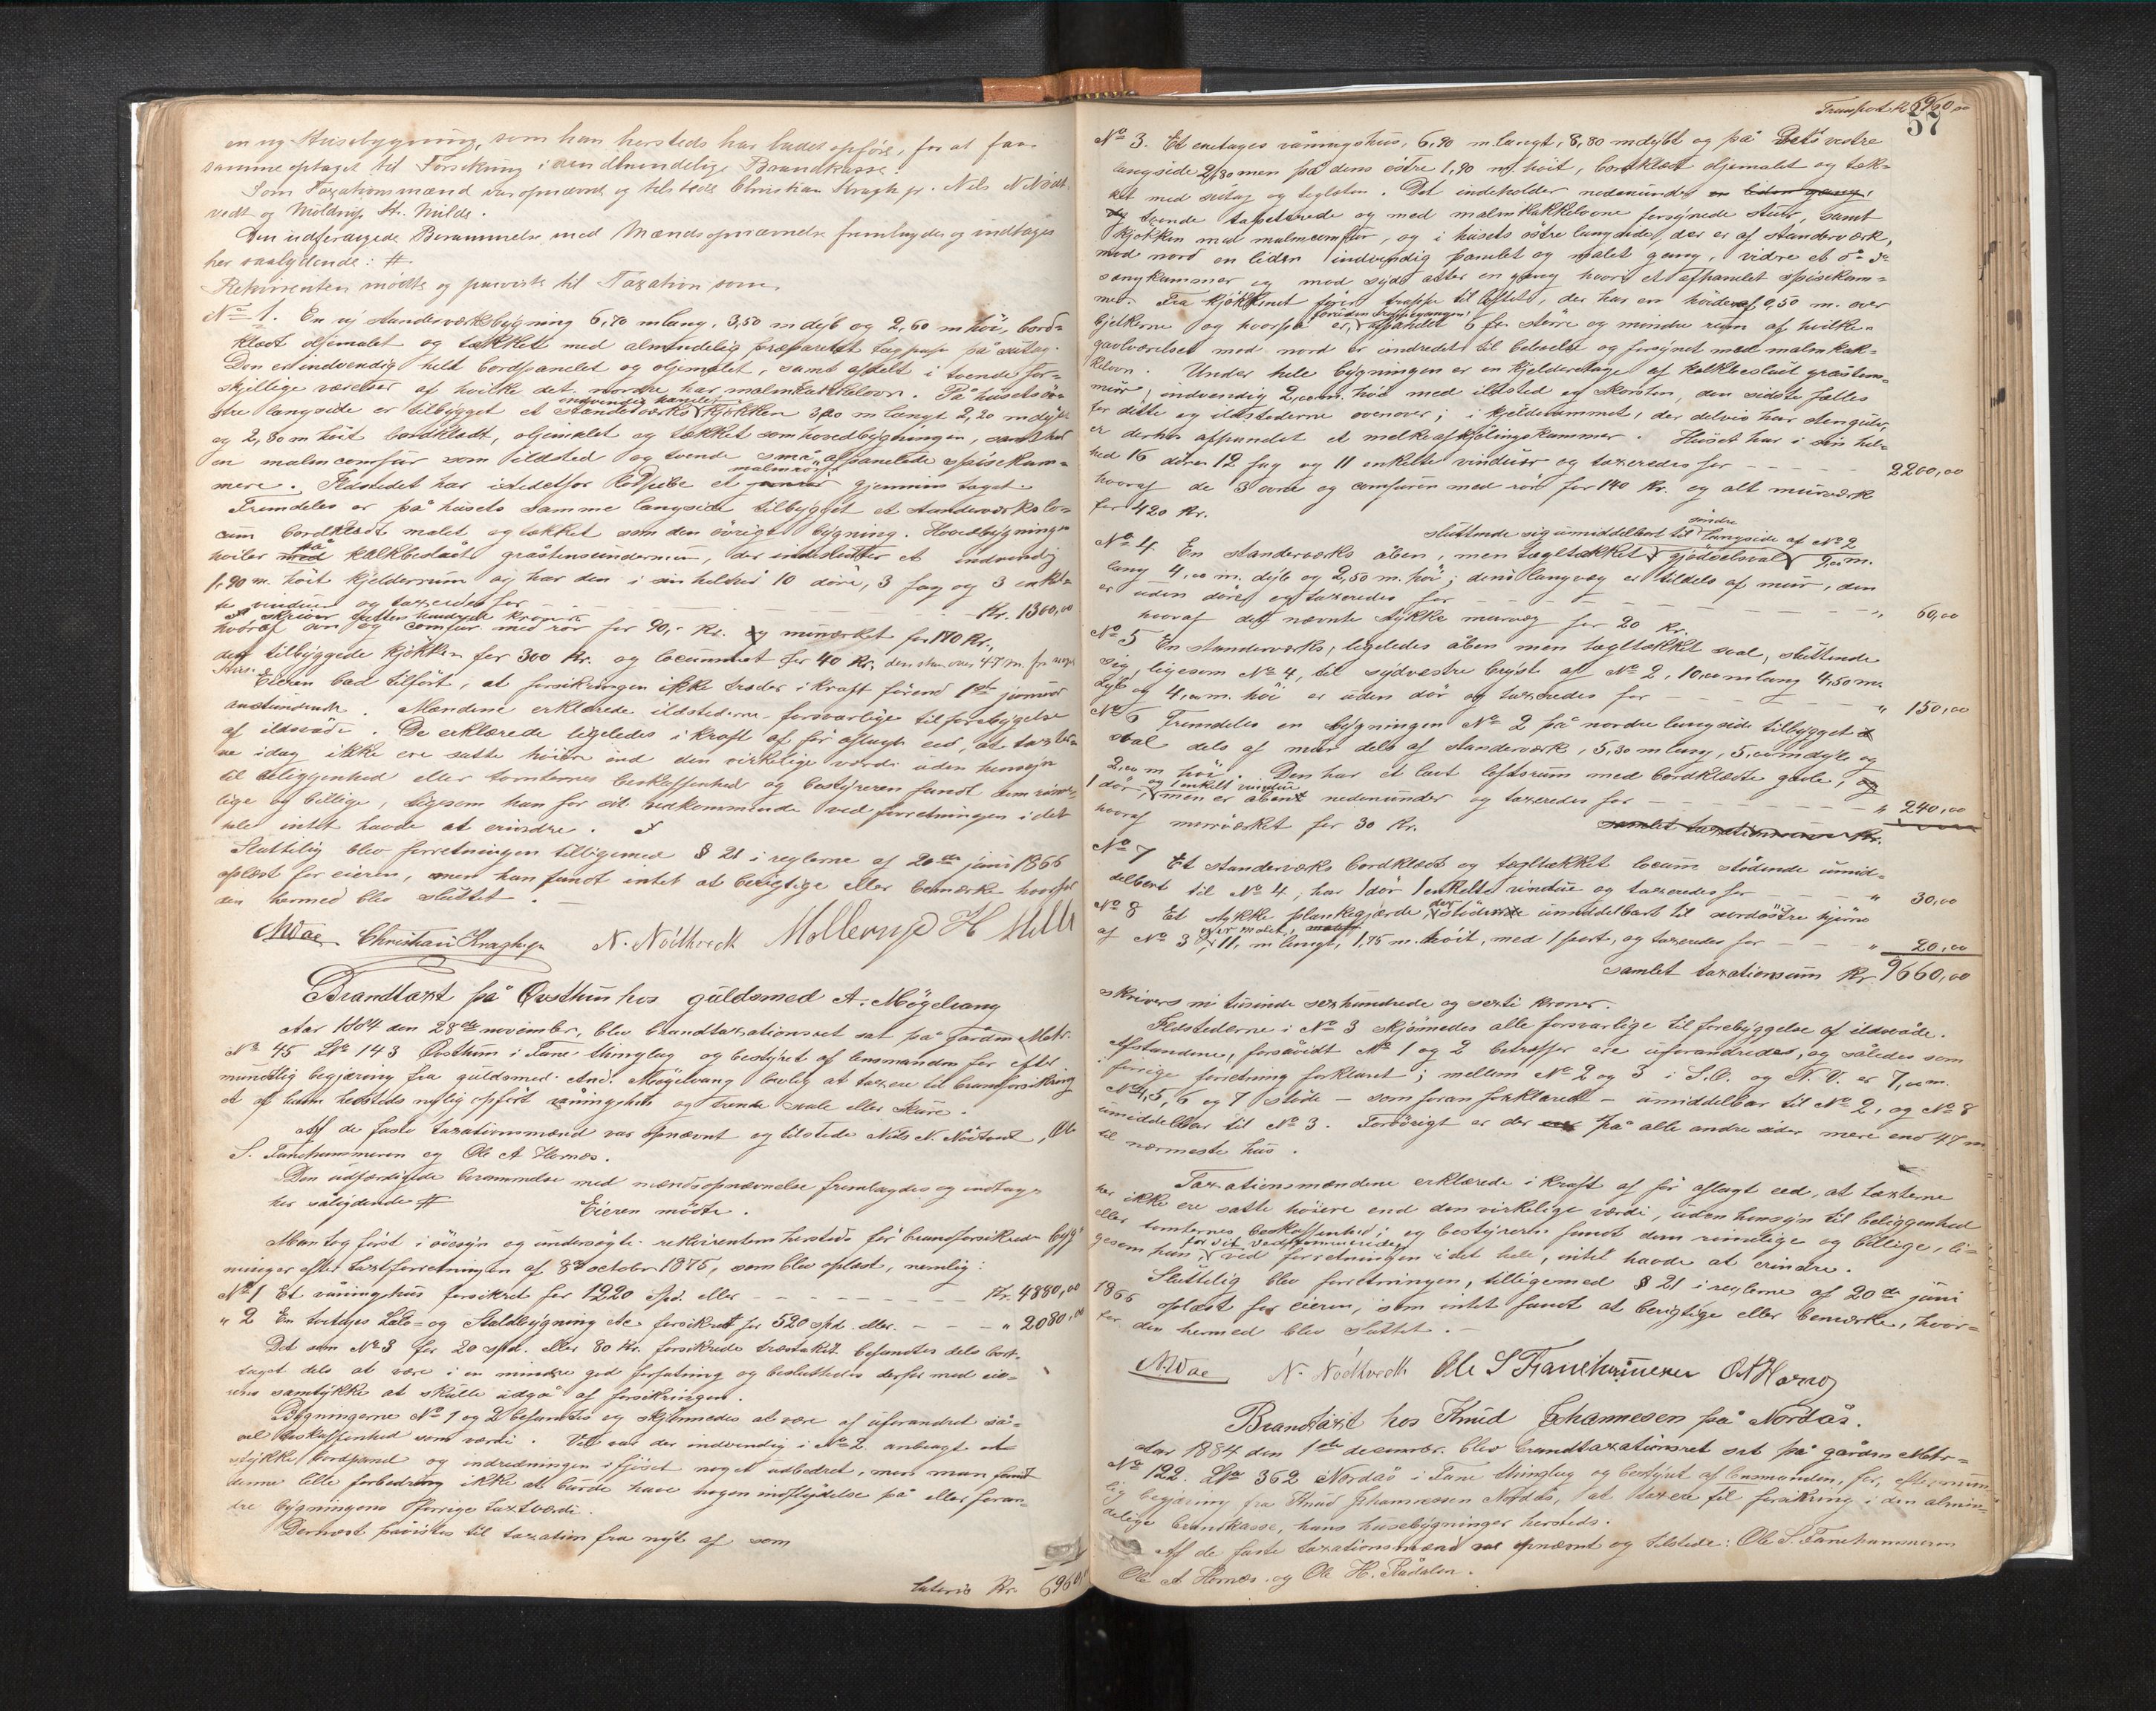 en ny Husebygning, som han hersteds har ladet opföre, for at faa
samme optaget til Forsikring i den almindelige Brandkasse.
Som Taxationsmænd var opnævnt og tilstede Christian Kragh jr. Nils N. Nödt-
vedt og Möldrup H. Milde.
Den udfærdigede Berammelse med Mændsopnævnelse fremlagdes og indtages
her saalydende: #
Rekvirenten mödte og paaviste til Taxation som
No 1. En ny standerværksbygning 6,70 m lang, 3,50 m dyb og 2,60 m höi, bord-
klædt oljemalet og tækket med almindelig præpareret tagpap på sutag.
Den er indvendig helt bordpanelet og oljemalet, samt afdelt i tvende for-
skjellige værelser af hvilke det nordre har malmkakkelovn. På husets ös-
tre langside er tilbygget et standerværks indvendig panelet kjökken 3,20 m langt 2,20 m dybt
og 2,80 m höit bordklædt, oljemalet og tækket som hovedbygningen, samt har
en malmcomfur som ildsted og tvende små afpanelede spisekam-
mere. Ildstedet har istedetfor Rögpibe et malmrör gjennem taget.
Fremdeles er på husets samme langside tilbygget et standerværks lo-
cum bordklædt malet og tækket som den övrige bygning. Hovedbygningen
hviler på kalkbeslaaet gråstensundermur, der indeslutter et indvendig
1,90 m. höit kjelderrum og har den i sin helhed 10 döre, 3 fag og 3 enkel-
te vinduer og taxeredes for - - - Kr. 1300,00
skriver tretten hundrede kroner
hvoraf ovn og comfur med rör for 90,- Kr. og murværket for 170 Kr.,
det tilbyggede kjökken for 300 Kr. og locummet for 40 Kr. den staar over 47 m. fra noget
Hus.
Eieren bad tilfört, at forsikringen ikke træder i kraft förend 1ste januar
anstundende. Mændene erklærede ildstederne forsvarlige til forebygelse
af ildsvåde. De erklærede ligeledes i kraft af för aflagt eed, at taxter-
ne idag ikke ere satte höiere end den virkelige værdi uden hensyn
til beliggenhed eller tomternes beskaffenhed og bestyreren fandt dem rime-
lige og billige, ligesom han for sit vedkommende ved forretningen i det
hele intet havde at erindre.
Sluttelig blev forretningen tilligemed § 21 i reglerne af 20de juni 1866
oplæst for eieren, men han fandt intet at berigtige eller bemærke hvorfor
den hermed blev sluttet.
MWae Christian Kragh jr N. Nödtvedt Mollerup H Milde
Brandtaxt på Övsthun hos guldsmed A. Mögelvang
Aar 1884 den 28de november, blev brandtaxationsret sat på gården Matr.
No 45 LNo 143 Övsthun i Fane thinglag og bestyret af lensmanden for efter
mundtlig begjæring fra guldsmed And. Mögelvang lovlig at taxere til brandforsikring
et af ham hersteds nylig opfört våningshus og trende svale eller skure.
Af de faste taxationsmænd var opnævnt og tilstede Nils N. Nödtvedt, Ole
S. Fanehammeren og Ole A Hornæs.
Den udfærdigede berammelse med mændsopnævnelse fremlagdes og indtages
her sålydende # Eieren mödte.
Man tog först i öiesyn og undersögte rekvirentens hersteds för brandforsikrede byg-
ninger efter taxtforretningen af 8de october 1875, som blev oplæst, nemlig:
No 1 Et våningshus forsikret for 1220 Spd. eller - - - Kr. 4880,00
" 2 En toetages Lade- og Staldbygning etc forsikret for 520 spd. eller - - - " 2080,00
Det som No 3 for 20 spd. eller 80 Kr. forsikrede træskaket befandtes dels bort-
taget dels at være i en mindre god forfatning og besluttedes derfor med eie-
rens samtykke at skulle udgå af forsikringen.
Bygningerne No 1 og 2 befandtes og skjönnedes at være af uforandret så-
vel beskaffenhed som værdi. Vel var der indvendig i No 2 anbragt et
stykke bordpanel og indredningen i fjöset noget udbedret, men man fandt
denne lille forbedring ikke at burde have nogen indflydelse på eller foran-
dre bygningens forrige taxtværdi.
Dernæst påvistes til taxation fra nyt af som
Lateris Kr. 6960,
Transport Kr 6960,00
57
No 3. Et eetages våningshus, 6,90 m. langt, 8,80 m dybt og på dets vestre
langside 2,80 men på dens östre 1,90 m. höit, bordklædt oljemalet og tæk-
ket med sutag og teglsten. Det indeholder nedenunder en liden gang,
tvende tapetserede og med malmkakkelovne forsynede stuer, samt
kjökken med malmcomfur, og i husets östre langside, der er af standerværk,
mod nord en liden indvendig panelet og malet gang, vidre et do do
sengkammer og mod syd atter en gang hvori et afpanelet spisekam-
mer. Fra kjökkenet förer trappe til loftet, der har en höide af 0,50 m. over
bjelkerne og hvorpå er, foruden trappegangen, afpanelet 6 st. större og mindre rum af hvilken
gavlværelset mod nord er indredet til beboelse og forsynet med malmkak-
kelovn. Under hele bygningen er en kjelderetage af kalkbeslaat gråstens-
mur, indvendig 2,00 m. höi med ildsted og skorsten, den sidste fælles
for dette og ildstederne ovenover; i kjelderrummet, der delvis har stengulv,
er derhos afpanelet et melkeafkjölingskammer. Huset har i sin hel-
hed 16 döre 12 fag og 11 enkelte vinduer og taxeredes for - - - 2200,00
hvoraf de 3 ovne og comfuren med rör for 140 Kr. og alt murværk
for 420 Kr.
sluttende sig umiddelbart til söndre langside af No 2
No 4. En standerværks åben, men tægltækket gjödselsval 9,00 m.
lang 4,00 m. dyb og 2,50 m. höi; dens langvæg er tildels af mur, den
er uden döre og taxeredes for - - - " 60,00
hvoraf det nævnte stykke murvæg for 20 Kr.
No 5 En standerværks, ligeledes åben men tægltækket sval, sluttende
sig, ligesom No 4, til sydvestre bryst af No 2, 10,00 m lang 4,50 m.
dyb og 4,00 m. höi er uden dör og taxeredes for - - - " 150,00
No 6 Fremdeles en bygningen No 2 på nordre langside tilbygget
sval dels af mur dels af standerværk, 5,30 m lang, 5,00 m dyb og
2,00 m höi. Den har et lavt loftsrum med bordklædte gavle, og
1 dör, og 1 enkelt vindue men er åben nedenunder og taxeredes for - - - " 240,00
hvoraf murværket for 30 Kr. samlet taxationssum Kr.
No 7 Et standerværks bordklædt og tægltækket locum stödende umid-
delbart til No 4, har 1 dör 1 enkelte vindue og taxeredes for - - - " 30,00
No 8 Et stykke plankegjærde, der stöder umiddelbart til nordöstre hjörne
af No 3 er malet, 11, m langt, 1,75 m. höit, med 1 port, og taxeredes for - - - " 20,00
samlet taxationsum Kr. 9660,00
skrives ni tusinde sexhundrede og sexti kroner.
Ildstederne i No 3 skjönnedes alle forsvarlige til forebyggelse af ildsvåde.
Afstandene, forsåvidt No 1 og 2 betræffer ere uforandrede, og således som
forrige forretning forklaret; mellem No 2 og 3 i S.O. og N.V. er 7,00 m.
No 4, 5, 6 og 7 stöde - som foran forklaret - umiddelbar til No 2, og No 8
umiddelbar til No 3. Forövrigt er der på alle andre sider mere end 47 m
til nærmeste hus.
Taxationsmændene erklærede i kraft af för aflagt eed, at taxterne
her ikke ere satte höiere end den virkelige værdi, uden hensyn til beliggenhed
eller tomternes beskaffenhed; og bestyreren fandt dem rimelige og billige, li-
gesom han for sit vedkommende ved forretningen i det hele, intet havde at erindre.
Sluttelig blev forretningen, tilligemed § 21 i reglerne af 20de juni
1866 oplæst for eieren, som intet fandt at berigtige eller bemærke, hvor-
for den hermed blev sluttet.
MWae N. Nödtvedt Ole S Fanehammeren OAHornæs
Brandtaxt hos Knud Johannesen på Nordås.
Aar 1884 den 1ste december blev brandtaxationsret sat på gården Matr-
No 122. LNo 362 Nordås i Fane thinglag og bestyret af lensmanden, for, efter mundt-
lig begjæring fra Knud Johannessen Nordås, at taxere til forsikring i den almin-
delige brandkasse, hans husebygninger hersteds.
Af de faste taxationsmænd var opnævnt og tilstede: Ole S. Fanehammeren
Ole A Hornæs og Ole H. Rådalen.